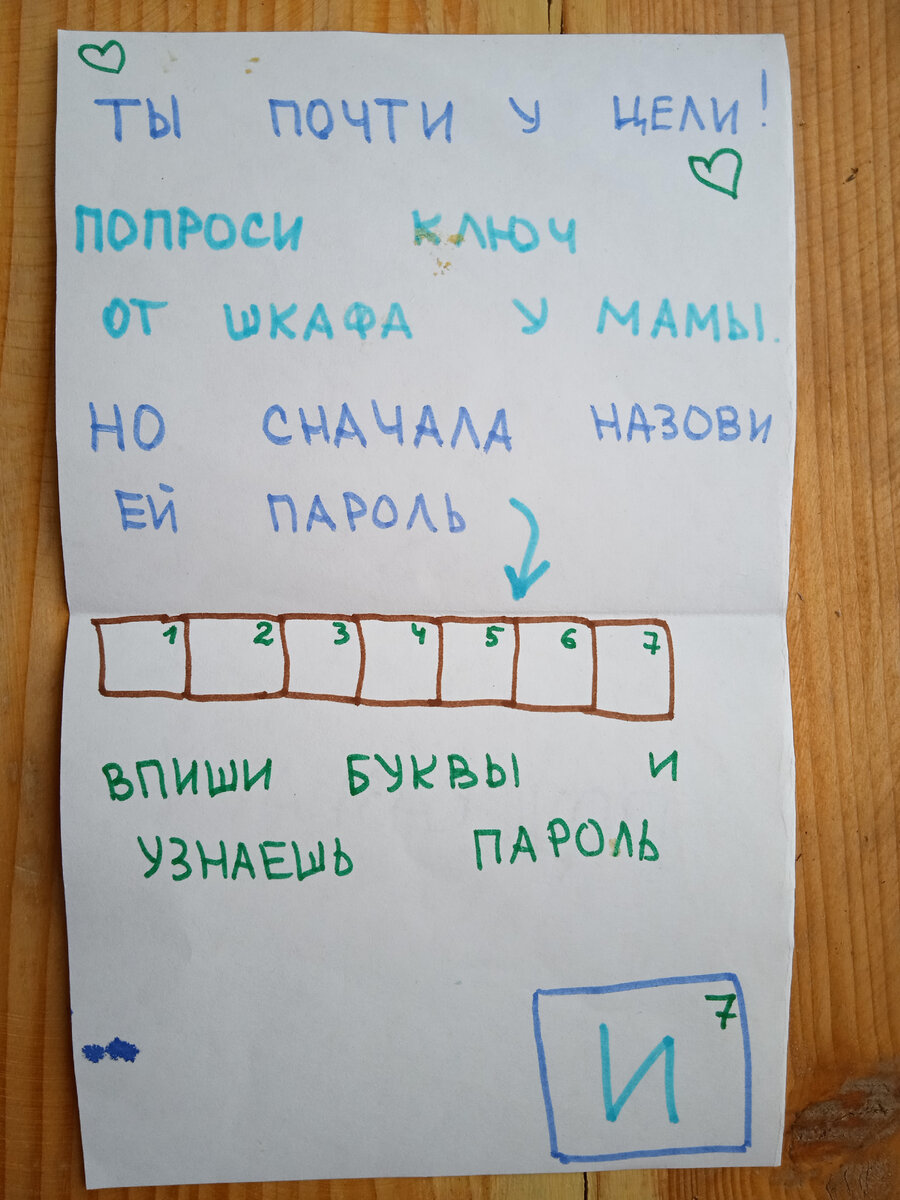 ТЫ ПОЧТИ У ЦЕЛИ!
ПОПРОСИ КЛЮЧ
ОТ ШКАФА У МАМЫ.
НО СНАЧАЛА НАЗОВИ
ЕЙ ПАРОЛЬ
1 2 3 4 5 6 7
ВПИШИ БУКВЫ И
УЗНАЕШЬ ПАРОЛЬ
7
И